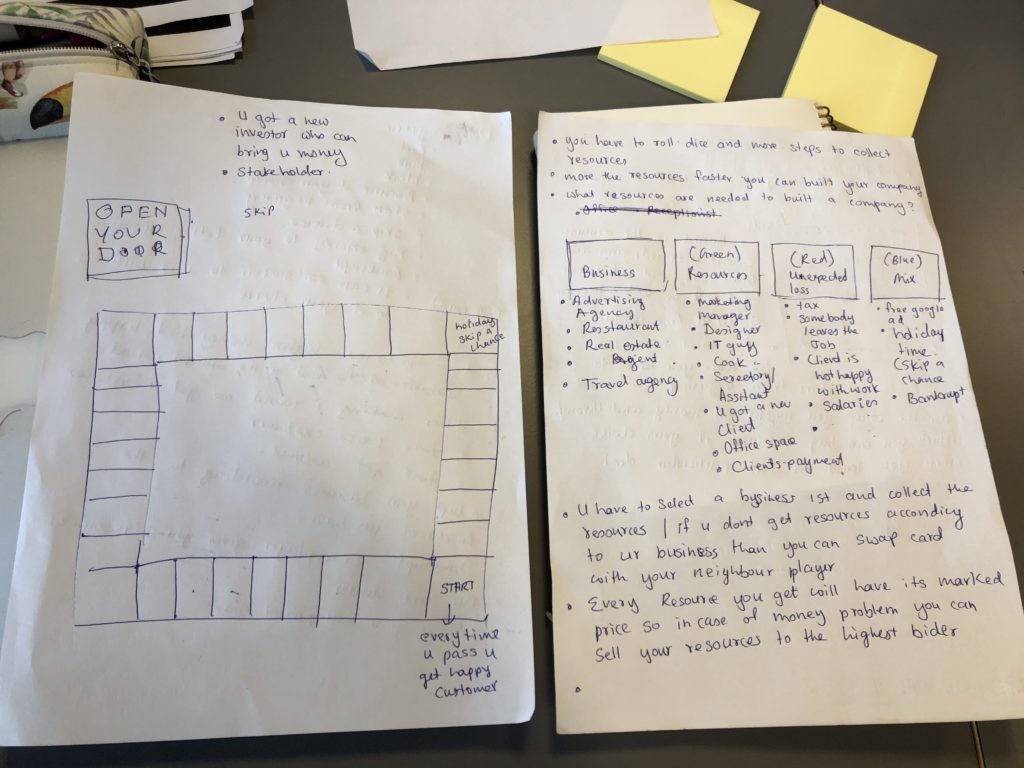 • U got a new
investor who can
bring u money
• Stakeholder.
Skip
OPEN
YOUR
DOOR
holiday
skip a
chance
START
everytime
u pass u
get happy
customer
• you have to roll dice and more steps to collect
resources
• more the resources faster you can built your company
• what resources are needed to built a company?
• Office Receptionist
Business
• Advertising
Agency
• Resstaurant
• Real estate
• Agient
• Travel agency
(Green)
Resources
• marketing
manager
• Designer
• IT guy
• Cook
• Sereetory/
Assitant
• U got a new
Client
• Office spae
• Clients-payment
(Red)
Unexpected
loss
• tax
• Somebody
leaves the
Job
• Client is
not happy
with work
• Salaries
•
(Blue)
Mix
• free google
ad
• holiday
time
(skip a
chance
• Bankrupt
• U have to select a business 1st and collect the
resources / if u dont get resources according
to ur business than you can swap card
with your neighbour player
• Every Resource you get will have its marked
price so in case of money problem you can
Sell your resources to the highest bider
•